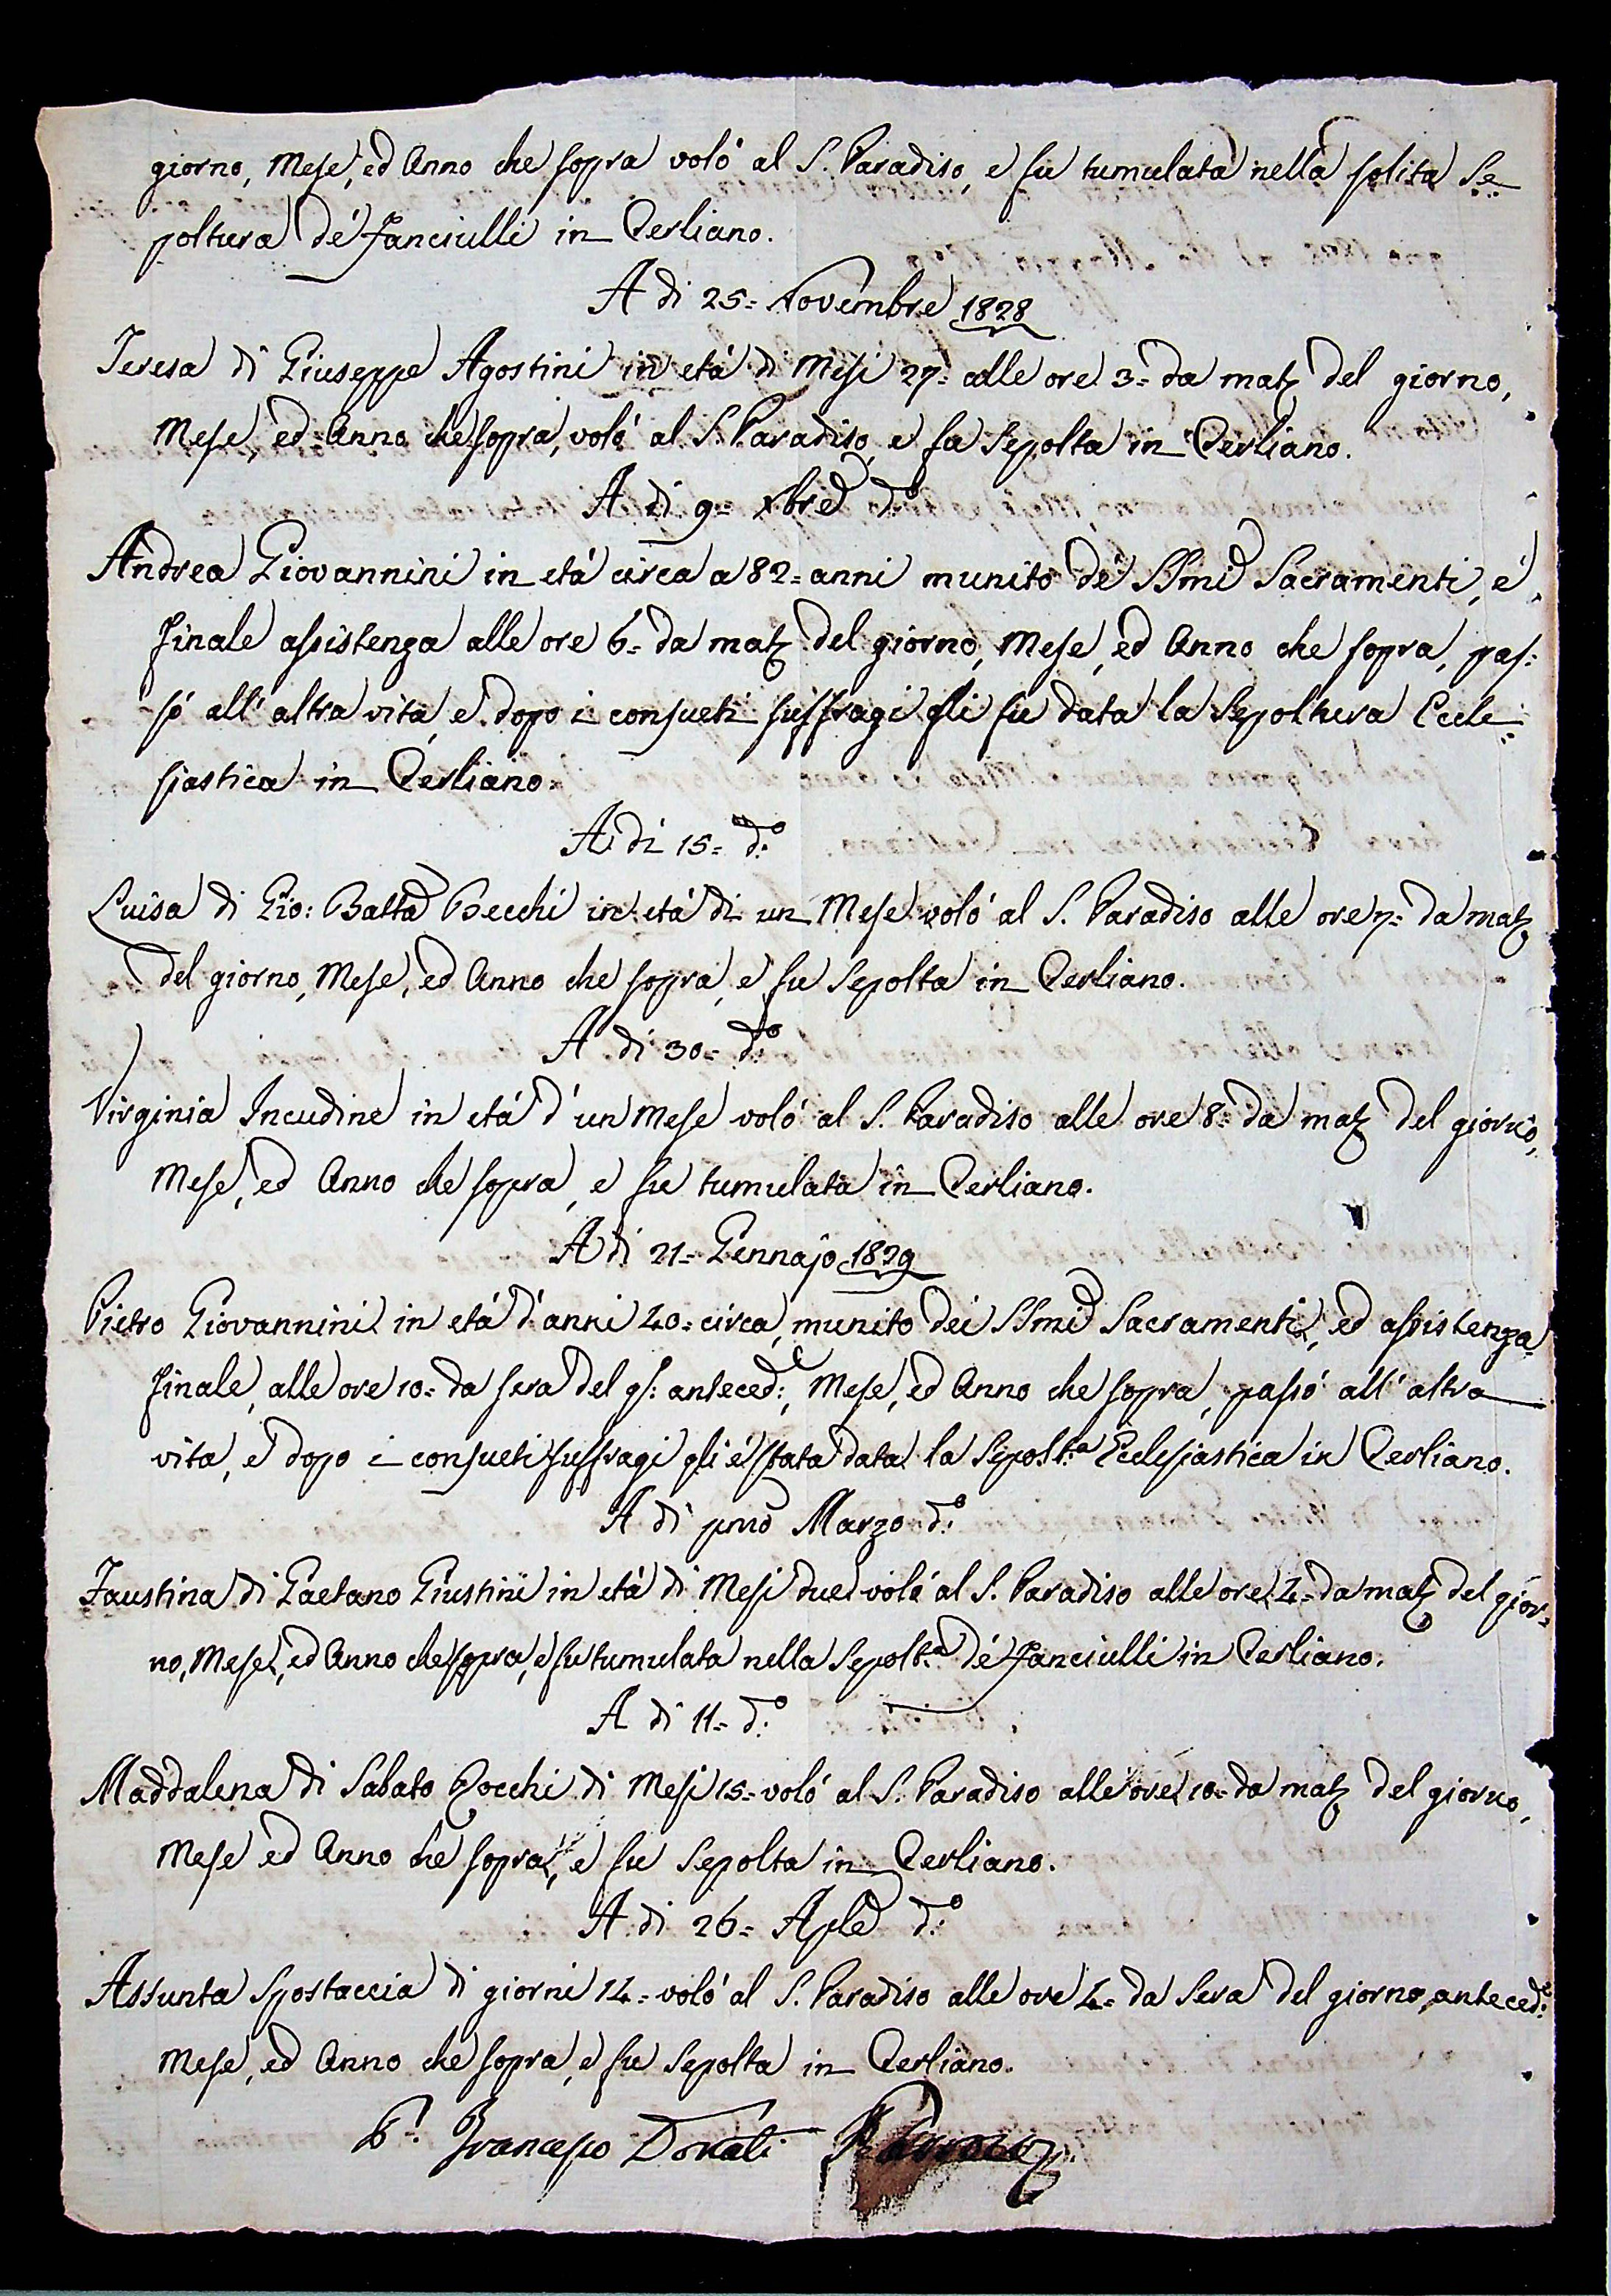 giorno, Mese, ed Anno che sopra voló al S. Paradiso, e fu tumulata nella solita Se
poltura dé Fanciulli in Cerliano.
A di 25= Novembre 1828
Teresa di Giuseppe Agostini in etá di Mesi 27= alle ore 3= da mat.ª del giorno,
Mese, ed Anno che sopra, voló al S. Paradiso, e fu Sepolta in Cerliano.
A di 9= Xbre d.º
Andrea Giovannini in etá circa a 82= anni munito dé SSmi Sacramenti, e
finale assistenza alle ore 6= da mat.ª del giorno, Mese, ed Anno che sopra, pas=
só all' altra vita, e dopo i consueti suffragi gli fu data la Sepoltura Eccle=
siastica in Cerliano.
A di 15= d.º
Luisa di Gio: Batta Becchi in etá di un Mese voló al S. Paradiso alle ore 7= da mat.ª
del giorno, Mese, ed Anno che sopra, e fu Sepolta in Cerliano.
A di 30= d.º
Virginia Incudine in etá d' un Mese voló al S. Paradiso alle ore 8= da mat.ª del giorno,
Mese, ed Anno che sopra, e fu tumulata in Cerliano.
A di 21= Gennajo 1829
Pietro Giovannini in etá d' anni 40= circa, munito dei SSmi Sacramenti, ed assistenza
finale, alle ore 10= da sera del gº: anteced:e, Mese, ed Anno che sopra, passó all' altra
vita, e dopo i consueti suffragi gli é stata data la Sepolt:a Ecclesiastica in Cerliano.
A di pmo Marzo d.º
Faustina di Gaetano Giustini in etá di Mesi due voló al S. Paradiso alle ore 4= da mat.ª del gior=
no, Mese, ed Anno che sopra, e fu tumulata nella Sepolt:a dé Fanciulli in Cerliano.
A di 11= d.º
Maddalena di Sabato Zocchi di Mesi 15= voló al S. Paradiso alle ore 10= da mat.ª del giorno,
Mese ed Anno che sopra, e fu Sepolta in Cerliano.
A di 26= Aple d.º
Assunta Spostaccia di giorni 14= voló al S. Paradiso alle ore 4= da Sera del giorno anteced:e
Mese, ed Anno che sopra, e fu Sepolta in Cerliano.
P. Francesco Donati Parroco